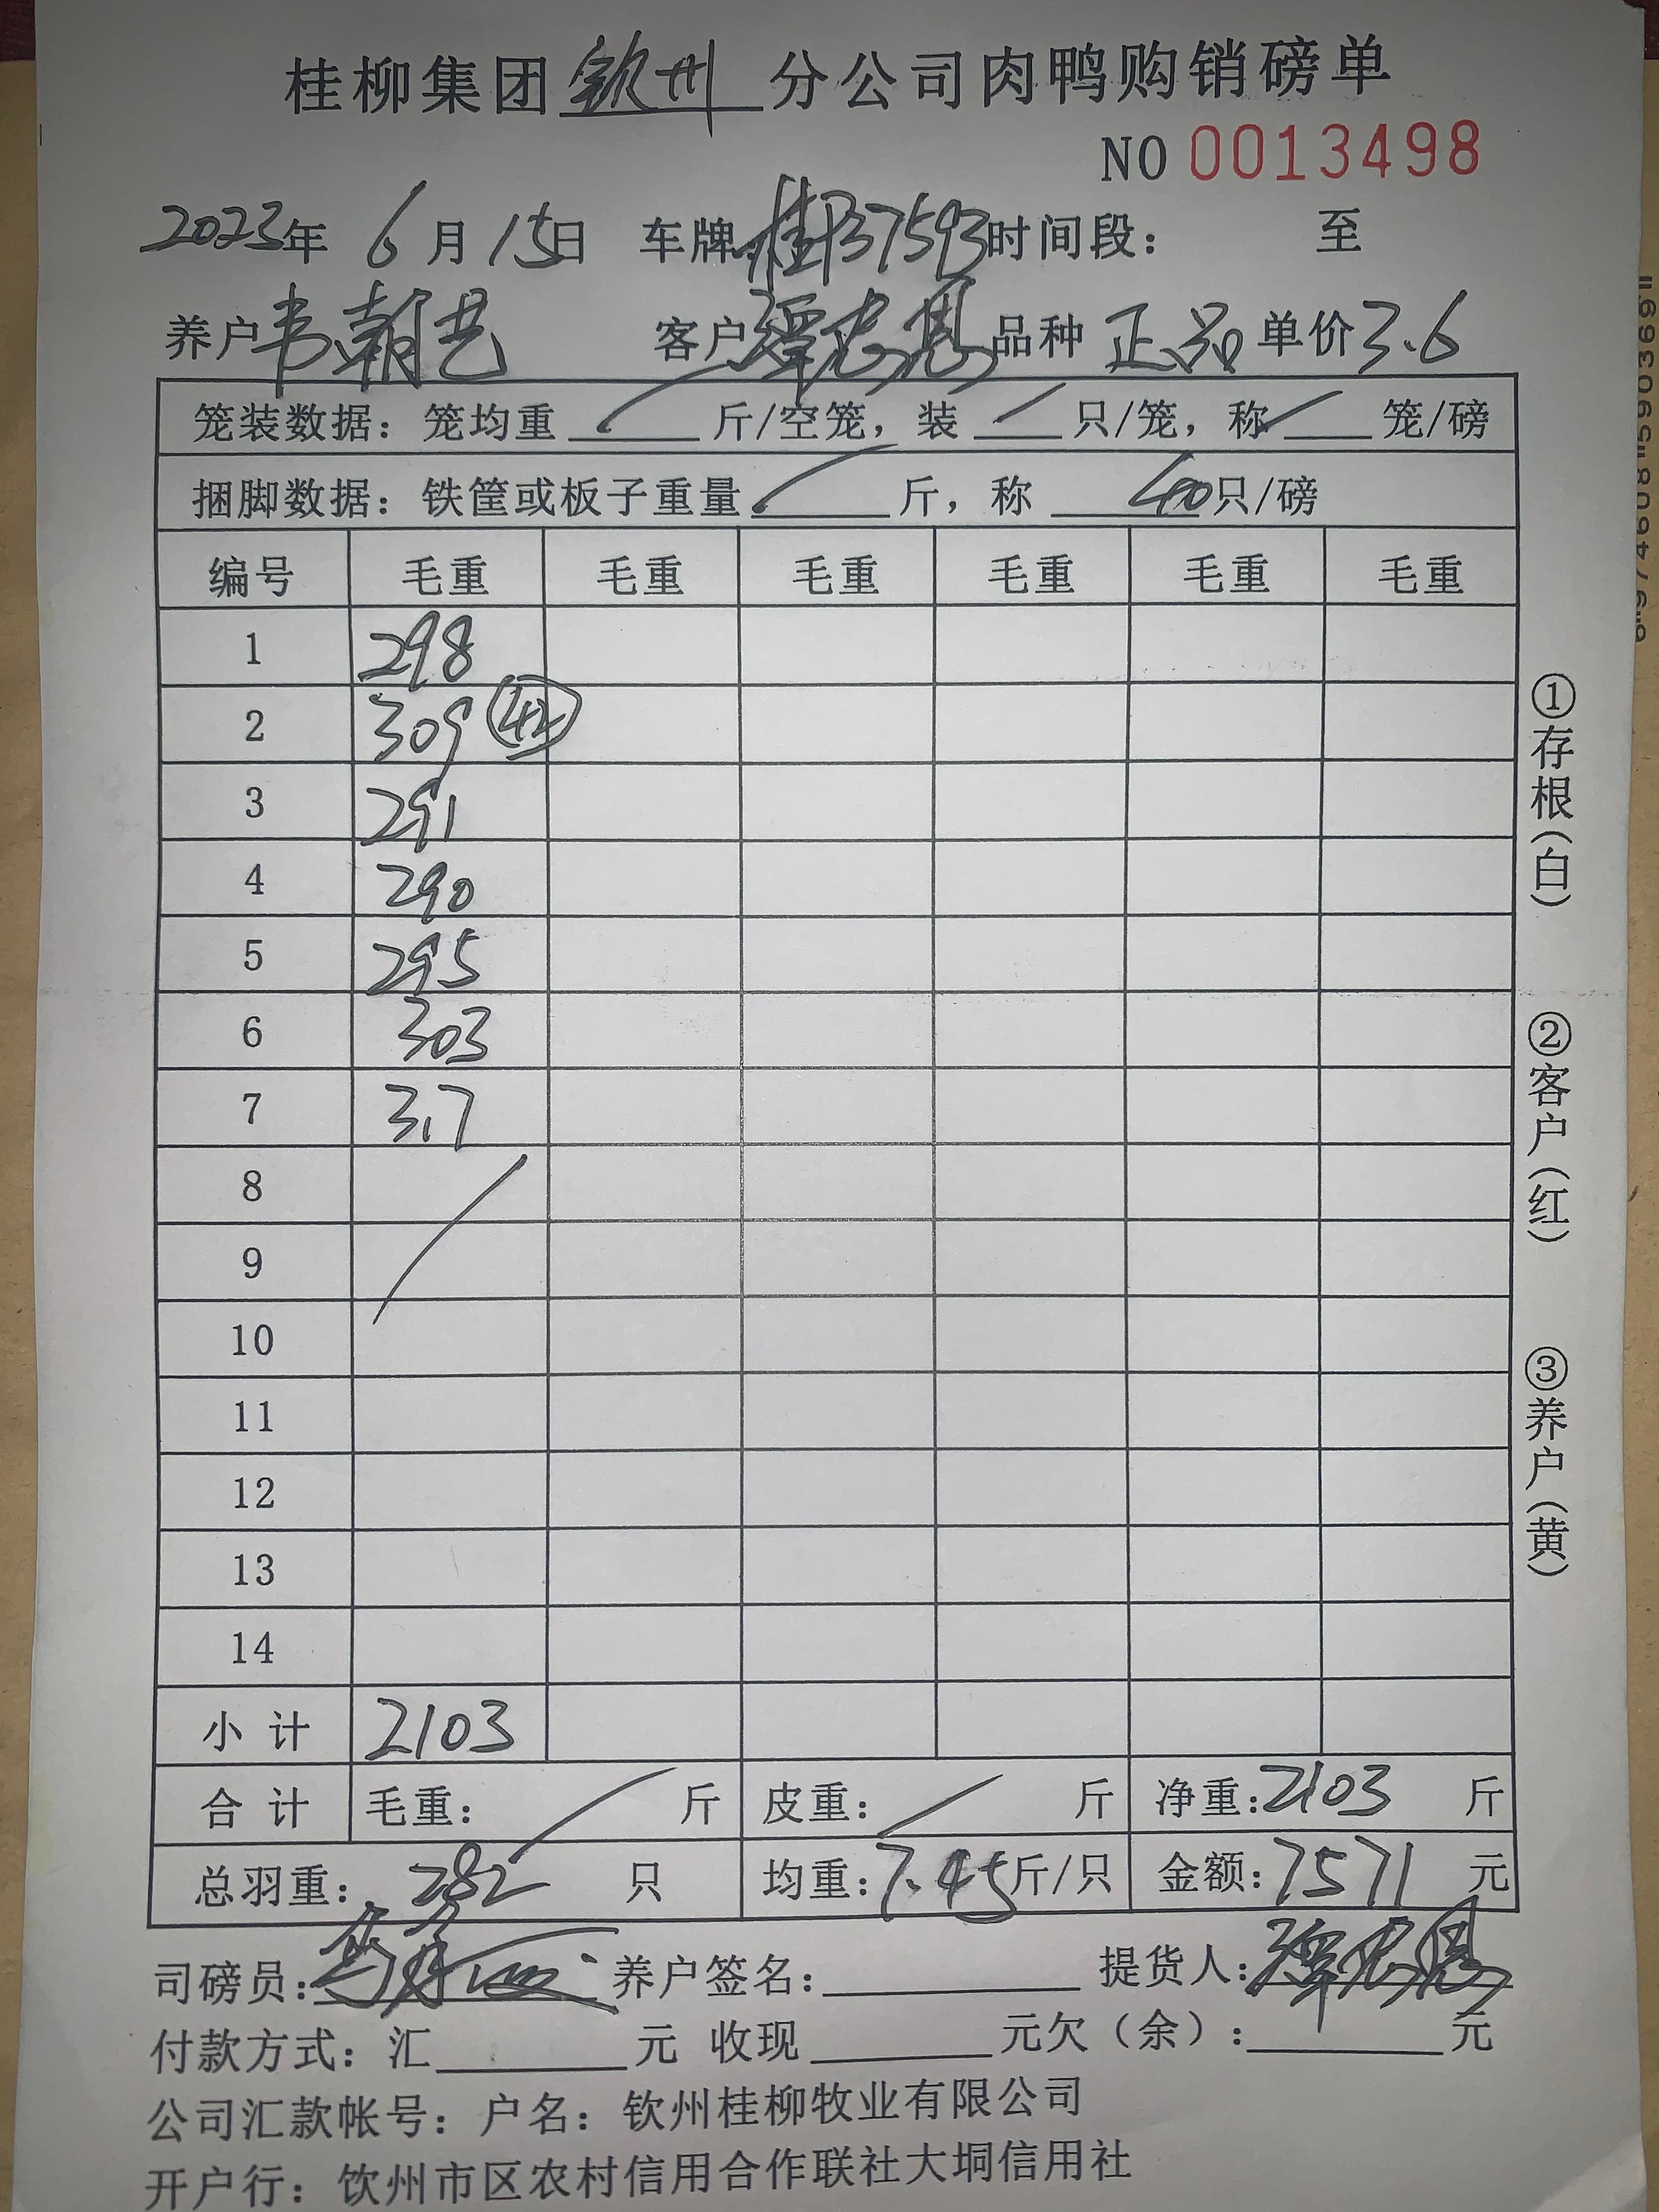 桂柳集团钦州分公司肉鸭购销磅单
NO 0013498
2023年 6月15日 车牌:桂B37593时间段: 至
养户韦朝艺 客户覃忠恩品种 正品 单价3.6
笼装数据:笼均重 斤/空笼,装 只/笼,称 笼/磅
捆脚数据:铁筐或板子重量 斤,称 40只/磅
编号 毛重 毛重 毛重 毛重 毛重 毛重
1 298
2 309 42
3 291
4 290
5 295
6 303
7 317
8
9
10
11
12
13
14
小 计 2103
合 计 毛重: 斤 皮重: 斤 净重:2103 斤
总羽重: 282 只 均重:7.45斤/只 金额:7571 元
司磅员: 养户签名: 提货人:覃忠恩
付款方式:汇 元 收现 元欠(余): 元
公司汇款帐号:户名:钦州桂柳牧业有限公司
开户行:饮州市区农村信用合作联社大垌信用社
①存根(白)
②客户(红)
③养户(黄)